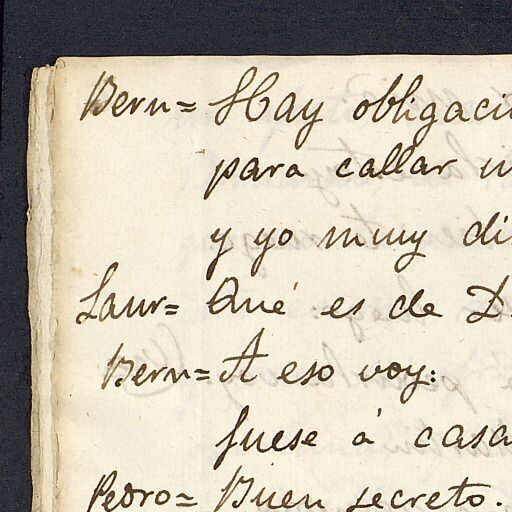 Bern= Hay obligaci
para callar
y yo muy di
Laur= Qué es de D
Bern= A eso voy:
fuese á casa
Pedro= Buen secreto.